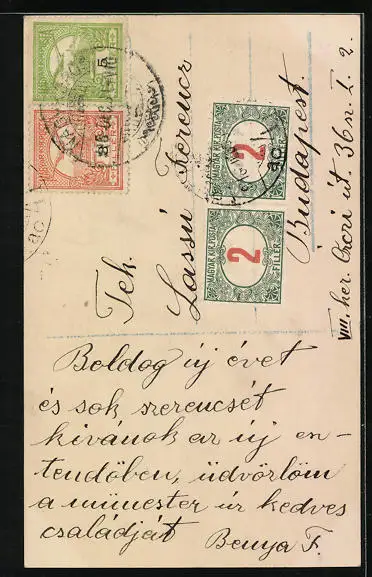 Boldog új évet
és sok szerencsét
kívánok az új en-
tendőben, üdvözlöm
a műmester úr kedves
családját
Benya F.
Tek.
Lassú Ferencz
Budapest.
VIII. ker. Orczi út. 36 sz. I. 2.
MAGYAR KIR. POSTA
2
FILLÉR
MAGYAR KIR. POSTA
2
FILLÉR
5